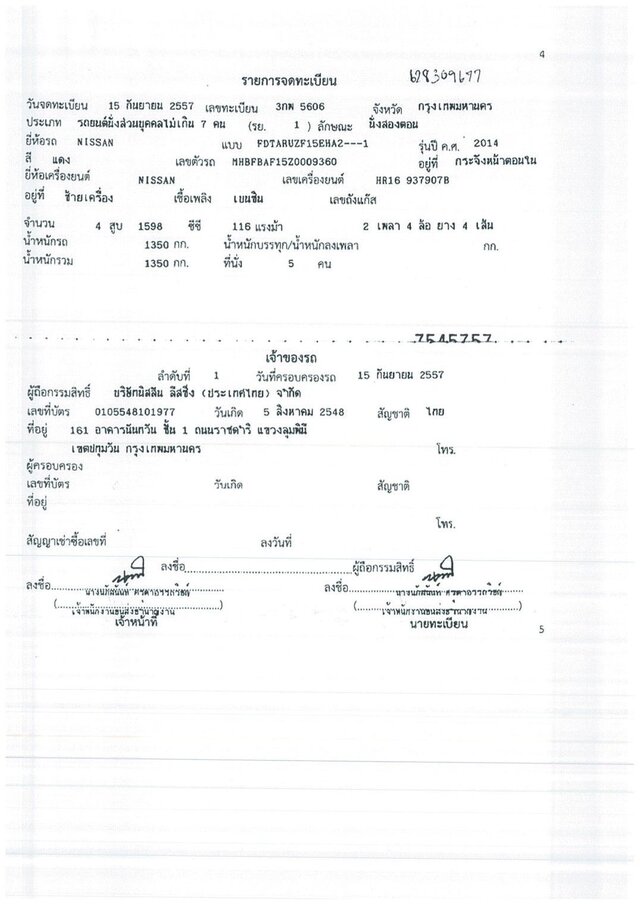 4
รายการจดทะเบียน
วันจดทะเบียน 15 กันยายน 2557 เลขทะเบียน 3กพ 5606 จังหวัด กรุงเทพมหานคร
ประเภท รถยนต์นั่งส่วนบุคคลไม่เกิน 7 คน (รย. 1 ) ลักษณะ นั่งสองตอน
ยี่ห้อรถ NISSAN แบบ FDTARUZF15EHA2---1 รุ่นปี ค.ศ. 2014
สี แดง เลขตัวรถ MHBFBAF15Z0009360 อยู่ที่ กระจังหน้าตอนใน
ยี่ห้อเครื่องยนต์ NISSAN เลขเครื่องยนต์ HR16 937907B
อยู่ที่ ซ้ายเครื่อง เชื้อเพลิง เบนซิน เลขถังแก๊ส
จำนวน 4 สูบ 1598 ซีซี 116 แรงม้า 2 เพลา 4 ล้อ ยาง 4 เส้น
น้ำหนักรถ 1350 กก. น้ำหนักบรรทุก/น้ำหนักลงเพลา กก.
น้ำหนักรวม 1350 กก. ที่นั่ง 5 คน
7545757
เจ้าของรถ
ลำดับที่ 1 วันที่ครอบครองรถ 15 กันยายน 2557
ผู้ถือกรรมสิทธิ์ บริษัทนิสสัน ลีสซิ่ง (ประเทศไทย) จำกัด
เลขที่บัตร 0105548101977 วันเกิด 5 สิงหาคม 2548 สัญชาติ ไทย
ที่อยู่ 161 อาคารนันทวัน ชั้น 1 ถนนราชดำริ แขวงลุมพินี
เขตปทุมวัน กรุงเทพมหานคร โทร.
ผู้ครอบครอง
เลขที่บัตร วันเกิด สัญชาติ
ที่อยู่
โทร.
สัญญาเช่าซื้อเลขที่ ลงวันที่
ลงชื่อ ผู้ถือกรรมสิทธิ์
ลงชื่อ ลงชื่อ
(เจ้าพนักงานขนส่งชำนาญงาน) (เจ้าพนักงานขนส่งชำนาญงาน)
เจ้าหน้าที่ นายทะเบียน
5